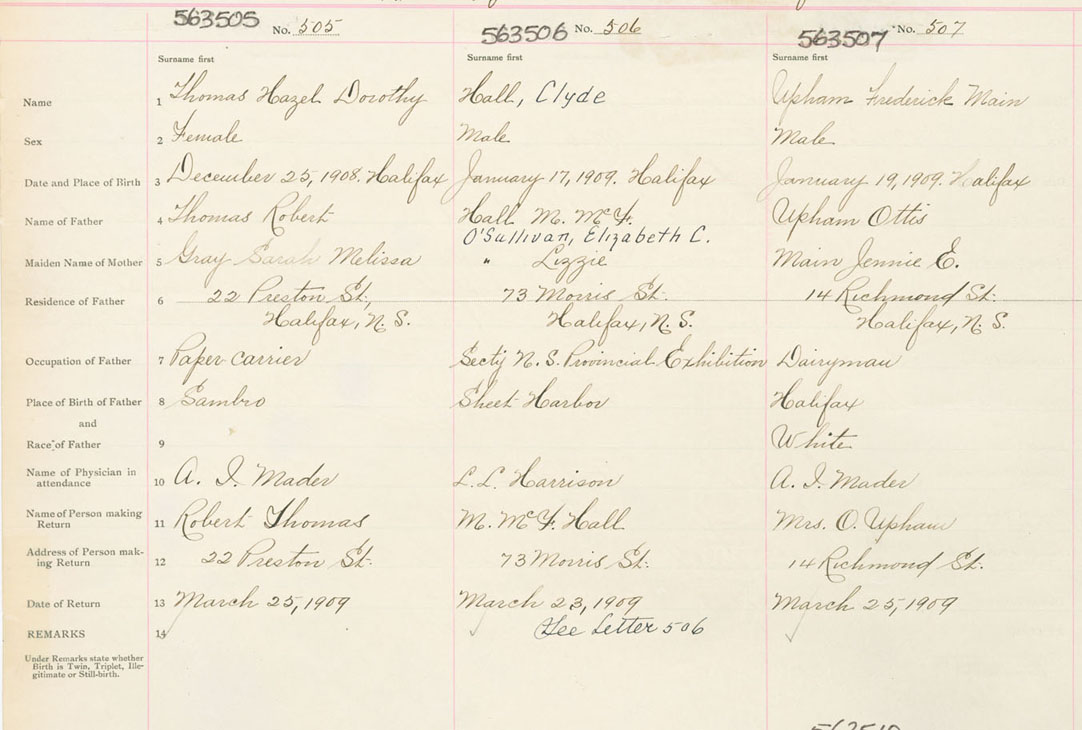 563505 No. 505 563506 No. 506 563507 No. 507
Surname first Surname first Surname first
Name 1 Thomas Hazel Dorothy Hall, Clyde Upham Frederick Main
Sex 2 Female Male Male
Date and Place of Birth 3 December 25, 1908. Halifax January 17, 1909. Halifax January 19, 1909. Halifax
Name of Father 4 Thomas Robert Hall M. McF. Upham Ottis
O'Sullivan, Elizabeth C.
Maiden Name of Mother 5 Gray Sarah Melissa " Lizzie Main Jennie E.
Residence of Father 6 22 Preston St., 73 Morris St. 14 Richmond St.
Halifax, N. S. Halifax, N. S. Halifax, N. S.
Occupation of Father 7 Paper carrier Secty N. S. Provincial Exhibition Dairyman
Place of Birth of Father 8 Sambro Sheet Harbor Halifax
and
Race of Father 9 White
Name of Physician in
attendance 10 A. I. Mader L. L. Harrison A. I. Mader
Name of Person making
Return 11 Robert Thomas M. McF. Hall Mrs. O. Upham
Address of Person mak-
ing Return 12 22 Preston St. 73 Morris St. 14 Richmond St.
Date of Return 13 March 25, 1909 March 23, 1909 March 25, 1909
REMARKS 14 See Letter 506
Under Remarks state whether
Birth is Twin, Triplet, Ille-
gitimate or Still-birth.